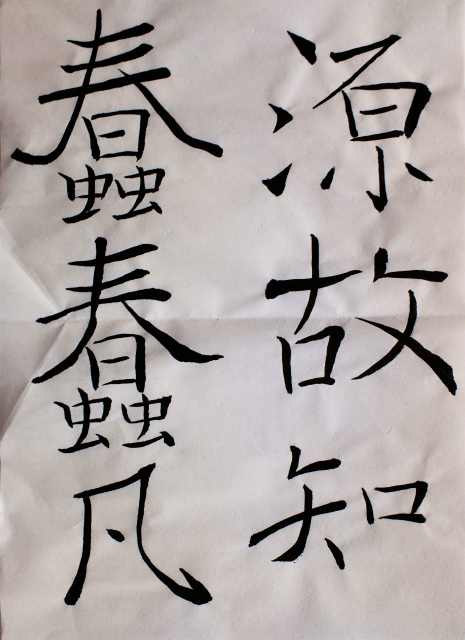 源故知
蠢蠢凡